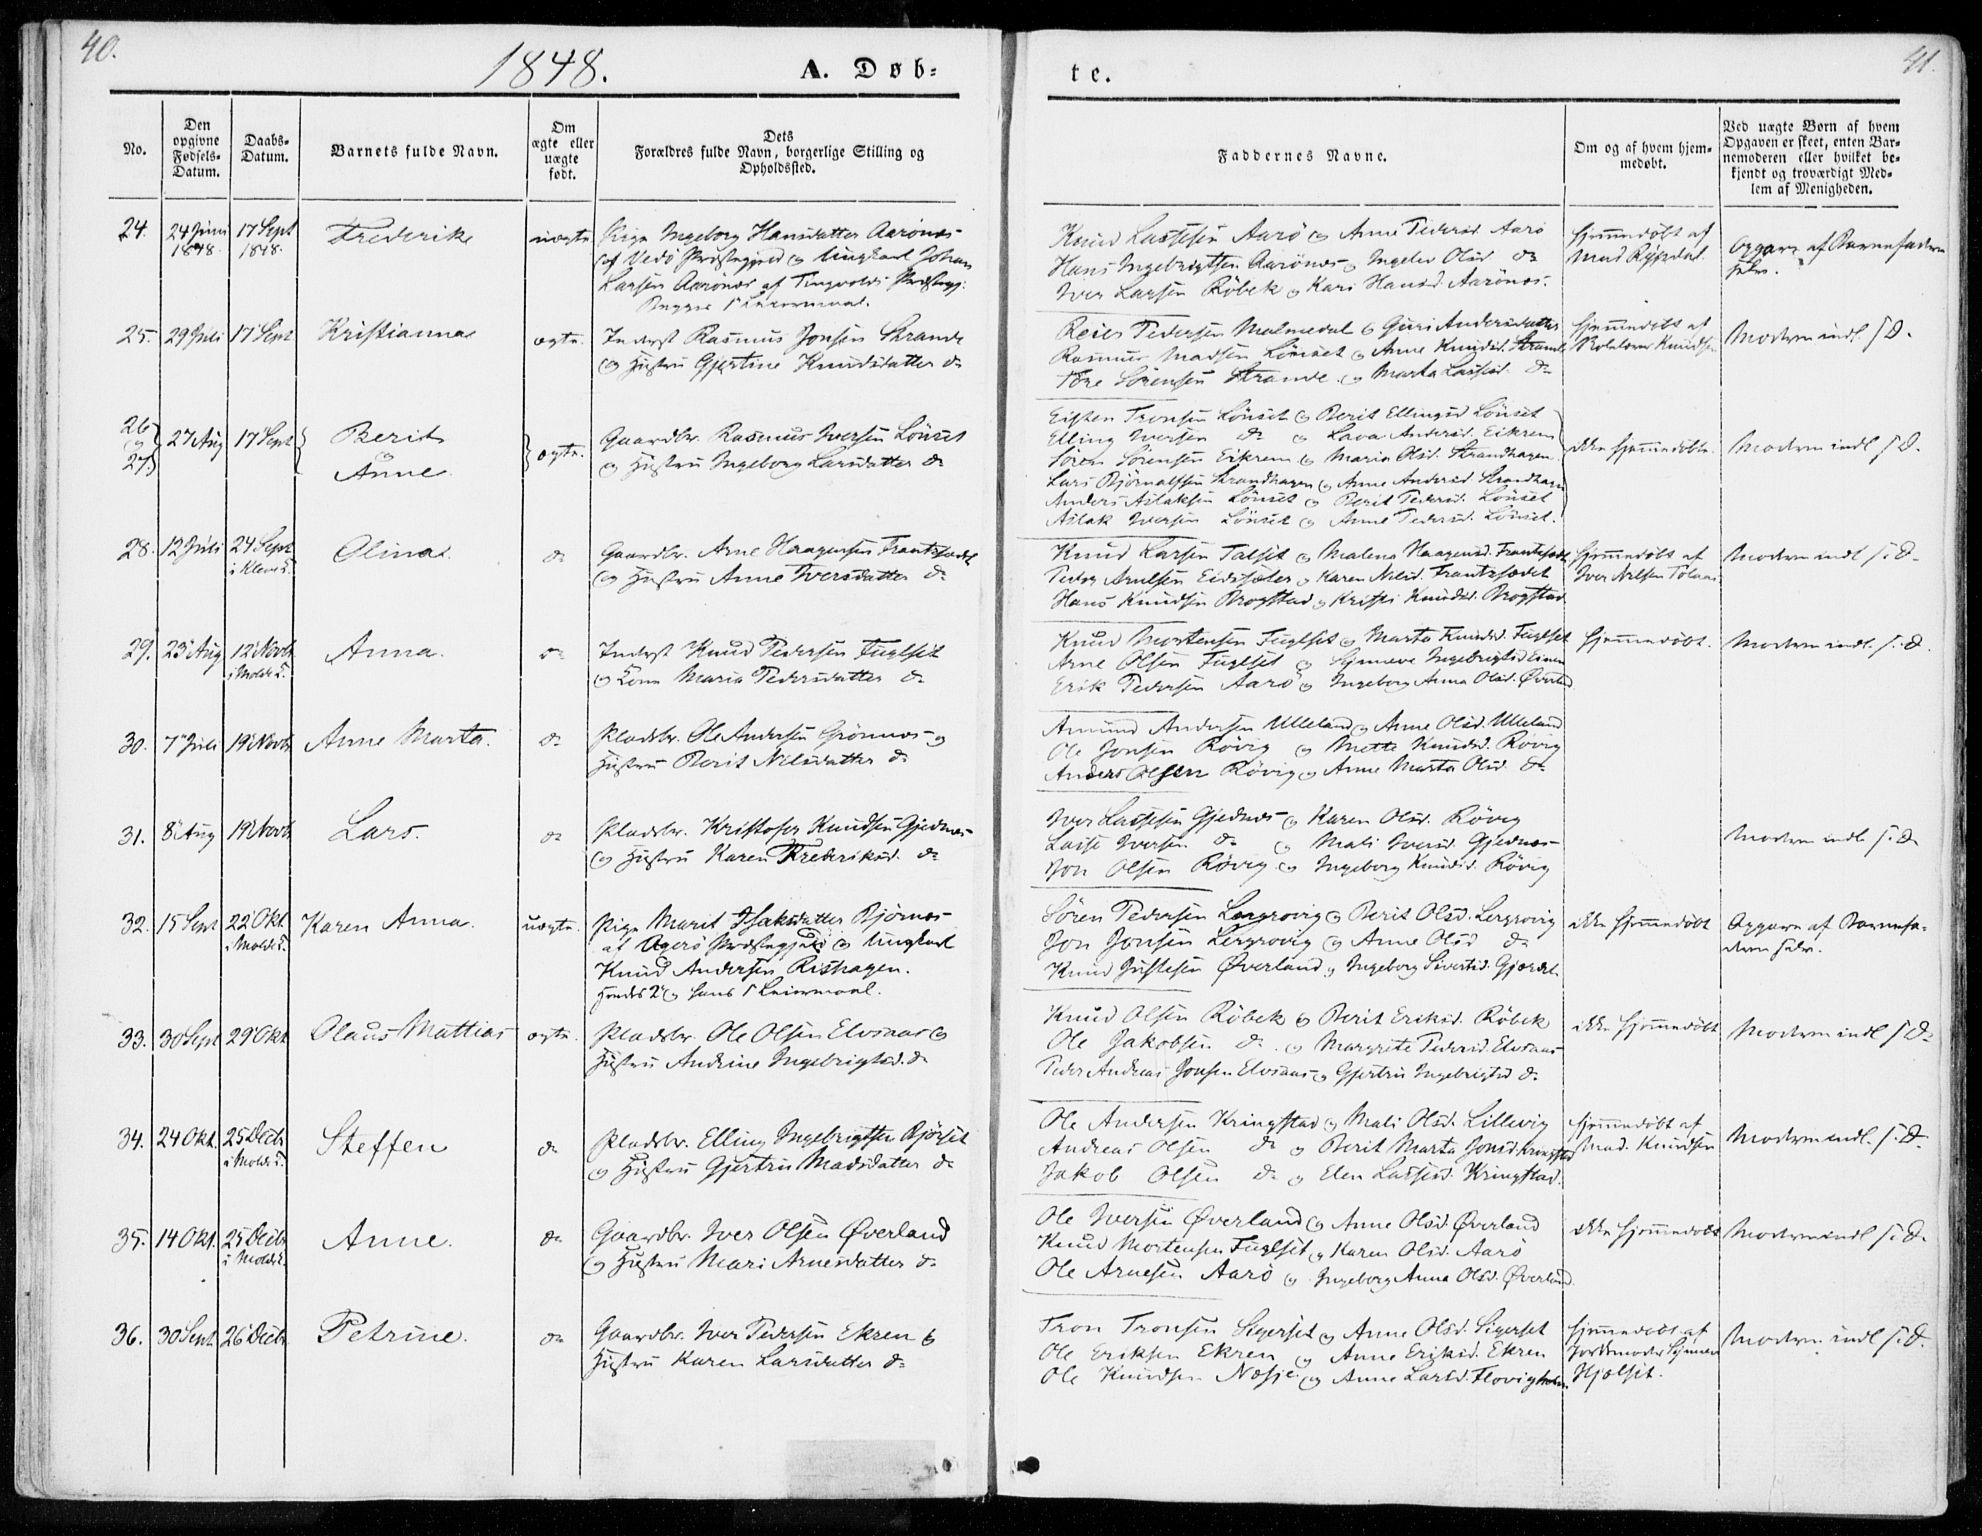 40.
1848.
A. Døb-
te.
41.
No.
Den opgivne Fødsels-Datum.
Daabs-Datum.
Barnets fulde Navn.
Om ægte eller uægte født.
Dets Forældres fulde Navn, borgerlige Stilling og Opholdssted.
Faddernes Navne.
Om og af hvem hjem-medøbt.
Ved uægte Børn af hvem Opgaven er skeet, enten Bar-nemoderen eller hvilket be-kjendt og troværdigt Med-lem af Menigheden.
24. 24 Juni 1848. 17 Sept 1848. Frederike uægte.
Pige Ingeborg Hansdatter Aarönæs
af Vedö Præstegjeld og Ungkarl Johan
Larsen Aarönæs af Tingvolds Præstegj.
Begges 1ste Leiermaal.
Knud Lassesen Aarö og Anne Pedersd. Aarö
Hans Ingebrigtsen Aarönæs og Ingelev Olsd. do
Iver Larsen Röbek og Kari Hansd. Aarönæs.
hjemmedöbt af
Opgave af Barnefaderen
selv.
25. 29 Juli 17 Sept Kristianna ægte.
Inderst Rasmus Jonsen Strande
og Hustru Gjertine Knudsdatter do
Reier Pedersen Malmedal og Guri Andersdatter
Rasmus Madsen Lönset og Anne Knudsd. Strande
Tore Sörensen Strande og Marta Lassesd. do
hjemmedöbt af
Skolelærer Knudsen
Moderen indl. s. D.
26 og 27 27 Aug 17 Sept Berit og Anne ægte.
Gaardbr. Rasmus Iversen Lönset
og Hustru Ingeborg Larsdatter do
Eisten Tronsen Lönset og Berit Ellingsd. Lönset
Elling Iversen do og Lava Andersd. Eikrem
Sören Sörensen Eikrem og Maria Olsd. Strandhagen
Lars Björnalfsen Strandhagen og Anne Andersd. Strandhagen
Anders Aslaksen Lönset og Berit Pedersd. Lönset
Aslak Iversen Lönset og Anne Pedersd. Lönset.
ikke hjemmedöbte.
Moderen indl. s. D.
28. 12 Juli 24 Sept i Kleve K. Olina. do
Gaardbr. Arne Haagensen Frantsædet
og Hustru Anne Iversdatter do
Knud Larsen Talset og Malena Haagensd. Frantsædet
Peder Arnesen Eidsæter og Karen Nilsd. Frantsædet
Hans Knudsen Brogstad og Kristi Knudsd. Brogstad
hjemmedöbt af
Iver Nilsen Tolaas
Moderen indl. s. D.
29. 23 Aug 12 Novb i Molde K. Anna. do
Inderst Knud Pedersen Fuglset
og Kone Maria Pedersdatter do
Knud Mortensen Fuglset og Marta Knudsd. Fuglset
Arne Olsen Fuglset og Synneve Ingebrigtsd
Erik Pedersen Aarö og Ingeborg Anna Olsd. Øverland
hjemmedöbt.
Moderen indl. s. D.
30. 7 Juli 19 Novb Anne Marta. do
Pladsbr. Ole Andersen Grönnæs og
Hustru Berit Nilsdatter do
Amund Andersen Ulleland og Anne Olsd. Ulleland
Ole Jonsen Rövig og Mette Knudsd. Rövig
Anders Olsen Rövig og Anne Marta Olsd. do
31. 8 Aug 19 Novb Lars. do
Pladsbr. Kristofer Knudsen Gjednæs
og Hustru Karen Frederiksd. do
Iver Lassesen Gjednæs og Karen Olsd. Rövig
Lasse Iversen do og Mali Iversd. Gjednæs
Jon Olsen Rövig og Ingeborg Knudsd. Rövig
Moderen indl. s. D.
32. 15 Sept 22 Okt i Molde K. Karen Anna. uægte.
Pige Marit Isaksdatter Björnæs
af Agerö Præstegjeld og Ungkarl
Knud Andersen Rishagen.
Hendes 2det og hans 1ste Leiermaal.
Sören Pedersen Lergrovig og Berit Olsd. Lergrovig
Jon Jonsen Lergrovig og Anne Olsd do
Knud Justesen Øverland og Ingeborg Sivertsd. Gjærdet
ikke hjemmedöbt
Opgave af Barnefa-
deren selv.
33. 30 Sept 29 Okt Olaus Mattias ægte.
Pladsbr. Ole Olsen Elvsaas og
Hustru Andrine Ingebrigtsd. do
Knud Olsen Röbek og Berit Eriksd. Röbek
Ole Jakobsen do. og Margrete Pedersd. Elvsaas
Peder Andreas Jonsen Elvsaas og Gjertru Ingebrigtsd do
ikke hjemmedöbt
Moderen indl s D.
34. 24 Okt. 25 Decb i Molde K. Steffen do
Pladsbr. Elling Ingebrigtsen Bjørset
og Hustru Gjertru Madsdatter do
Ole Andersen Kringstad og Mali Olsd. Lillevig
Andreas Olsen do og Berit Marta Jonsd. Kringstad
Jakob Olsen do og Elen Lassesd. Kringstad.
hjemmedöbt af
Mad. Knudsen
Moderen indl. s. D.
35. 14 Okt. 25 Decb i Molde K. Anne. do
Gaardbr. Iver Olsen Øverland
og Hustru Mari Arnesdatter do
Ole Iversen Øverland og Anne Olsd. Øverland
Knud Mortensen Fuglset og Karen Olsd. Aarö
Ole Arnesen Aarö og Ingeborg Anna Olsd. Øverland.
ikke hjemmedöbt
Moderen indl s. D.
36. 30 Sept. 26 Decb Petrine. do
Gaardbr. Iver Pedersen Ekren og
Hustru Karen Larsdatter do
Tron Tronsen Sigerset og Anne Olsd. Sigerset
Ole Eriksen Ekren og Anne Eriksd. Ekren
Ole Knudsen Nøsje og Anne Larsd. Flovigholm
hjemmedöbt af
Jordmoder
Hjelset.
Moderen indl s. D.